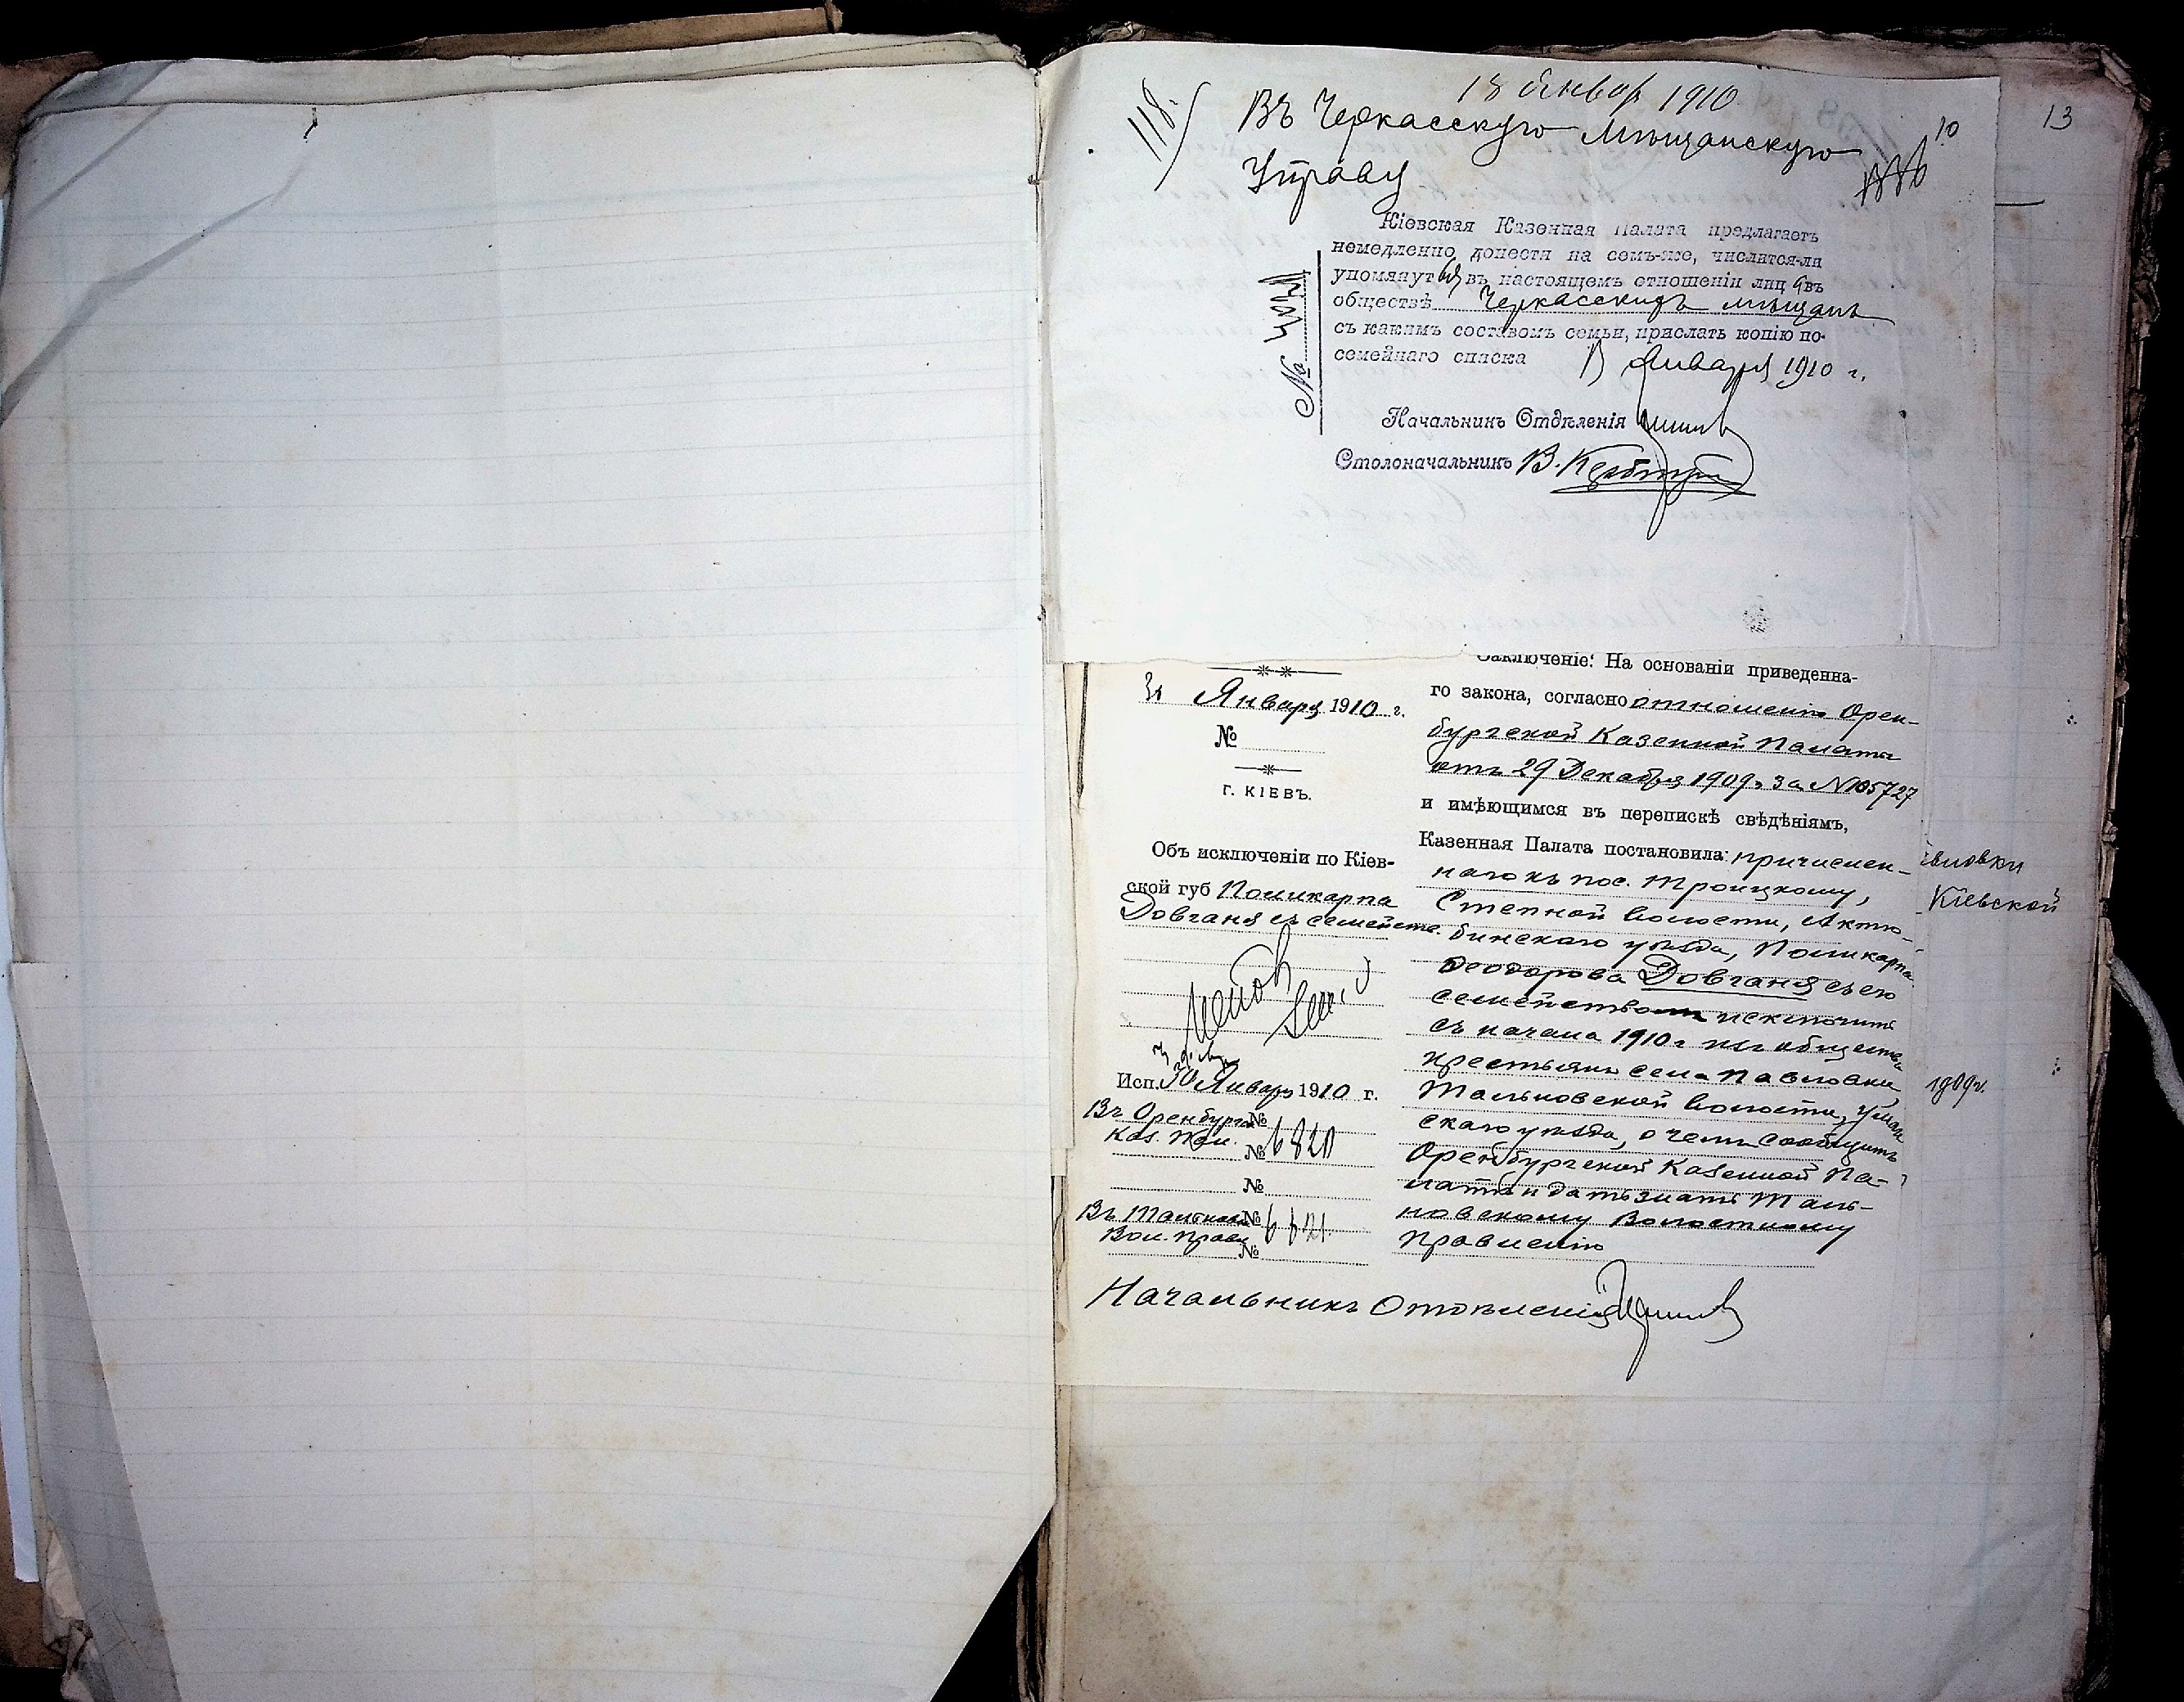 118.
18 Январ 1910
10
13
Въ Черкасскую Мѣщанскую
Управу
Кіевская Казенная Палата предлагаетъ
немедленно донести на семъ-же, числится-ли
упомянут въ настоящемъ отношеніи лиц въ
обществѣ Черкасскихъ мѣщанъ
съ какимъ составомъ семьи, прислать копію по-
семейнаго списка Января 1910 г.
№
Начальникъ Отдѣленія
Столоначальникъ В.
Заключеніе: На основаніи приведенна-
го закона, согласно отношенію Орен-
бургской Казенной Палаты
отъ 29 Декабря 1909 г за № 105727
и имѣющимся въ перепискѣ свѣдѣніямъ,
Казенная Палата постановила: причислен-
наго къ пос. Троицкому,
Степной волости, Актю-
бинскаго уѣзда, Поликарпа
Ѳеодорова Довганя съ его
семействомъ исключить
съ начала 1910 г изъ общества
крестьянъ села Павловки
Тальновской волости, Уман
скаго уѣзда, о чемъ сообщить
Оренбургской Казенной Па-
латѣ и дать знать Таль-
новскому Волостному
Правленію
Января 1910 г.
№
Г. КІЕВЪ.
Объ исключеніи по Кіев-
ской губ Поликарпа
Довганя съ семейств.
Исп. 30 Января 1910 г.
Въ Оренбургск №
Каз. Пал. № 6820
№
Въ Тальновск №
Вол. Правл № 6821.
Начальникъ Отдѣленія
вловки
Кіевской
1909 г.